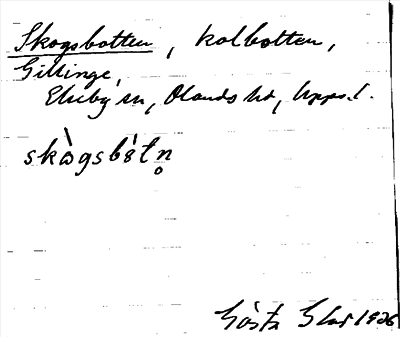 Skogsbotten, kolbotten,
Gillinge,
Ekeby sn, Olands hd, Upps. l.
skògsbótn̥
Gösta 1926